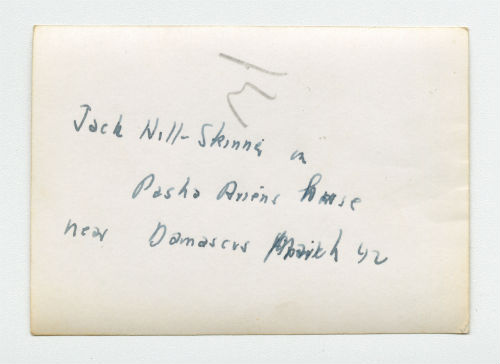 Jack Hill-Skinner in
Pasha Ariens house
near Damascus March 42